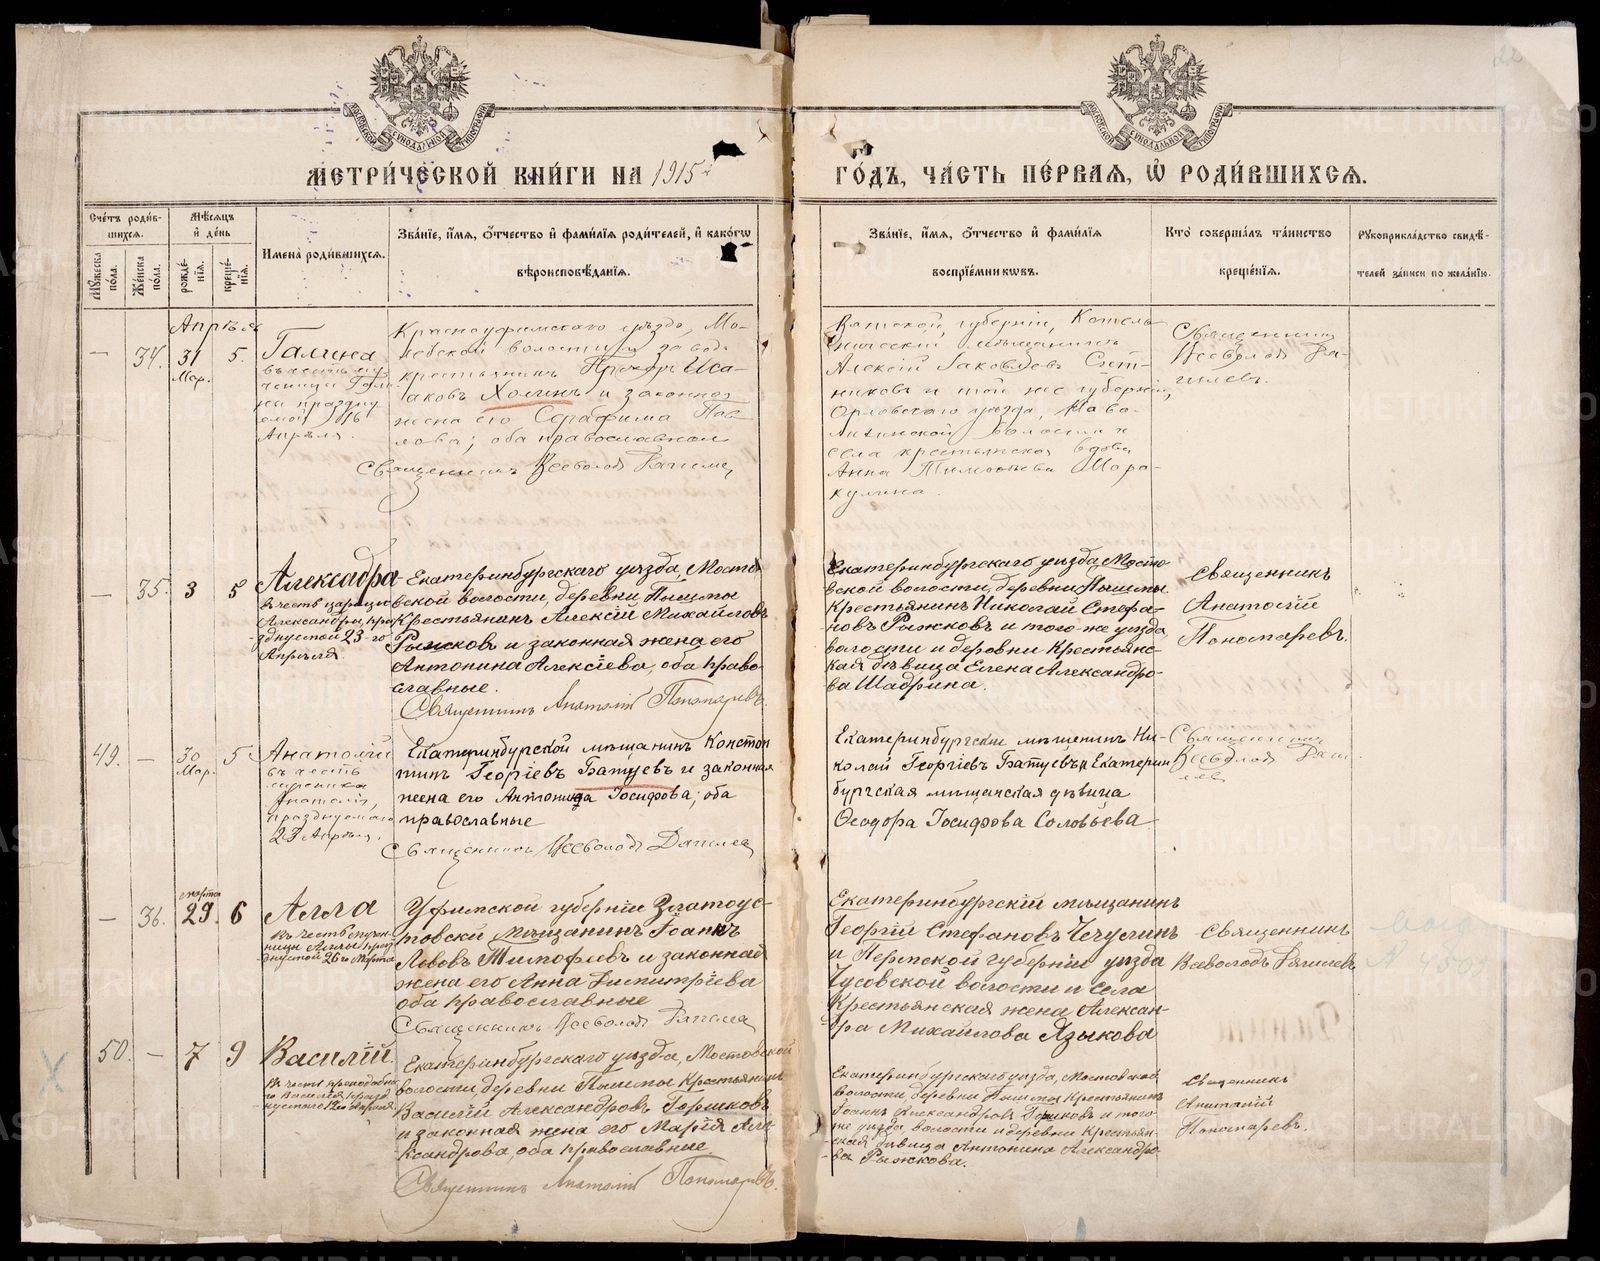 МЕТРИ́ЧЕСКОЙ КНИ́ГИ НА 1915 й
ГО́ДЪ, ЧА́СТЬ ПЕ́РВАЯ, Ѽ РОДИ́ВШИХСЯ.
Сче́тъ роди́в-
шихся.
Му́жеска по́ла.
Же́нска по́ла.
Мѣ́сяцъ
и҆ де́нь
рожде́-
нїя.
креще́-
нїя.
И҆мена̀ роди́вшихся.
Зва́нїе, и҆́мя, ѻ҆́тчество и҆ фами́лїя роди́телей, и҆ како́гѡ
вѣроисповѣ́данїя.
Зва́нїе, и҆́мя, ѻ҆́тчество и҆ фами́лїя
воспрїе́мниковъ.
Кто̀ соверша́лъ та́инство
креще́нїя.
Рꙋкоприкла́дство свидѣ́-
телей за́писи по жела́нїю.
Апрѣля
— 34. 31 Мар. 5.
Галина
въ честь му-
ченицы Гали-
ны праздну-
емой 16
Апрѣля.
Красноуфимскаго уѣзда, Мо-
лебской волости и завода
крестьянинъ Прохоръ Иса-
іаковъ Холинъ и законная
жена его Серафима Пав-
лова; оба православнаи
Священникъ Всеволодъ
Вятской губерніи, Котель-
ническій мѣщанинъ
Алексій Іаковлевъ Сит-
никовъ и той же губерніи,
Орловскаго уѣзда,
волости и
села крестьянская вдова
Анна Тимофѣева Мора-
кулина.
Священникъ
Всеволодъ
— 35. 3 5
Алексадра
въ честь царицы
Александры, пра-
зднуемой 23-го
Апрѣля
Екатеринбургскаго уѣзда, Мосто-
вской волости, деревни Пышмы
Крестьянинъ Алексій Михайловъ
Рыжковъ и законная жена его
Антонина Алексіева, оба право-
славные.
Священникъ Анатолій Пономаревъ.
Екатеринбургскаго уѣзда, Мосто-
вской волости, деревни Пышмы
Крестьянинъ Николай Стефа-
новъ Рыжковъ и того-же уѣзда
волости и деревни Крестьянс-
кая дѣвица Елена Александро-
ва Шадрина.
Священникъ
Анатолій
Пономаревъ.
49. — 30 Мар. 5
Анатолій
въ честь
Анатолія,
празднуемаго
23 Апрѣля.
Екатеринбурской мѣщанинъ Констон
тинъ Георгіевъ Батуевъ и законная
жена его Антонина Іосифова; оба
православные
Священникъ Всеволодъ
Екатеринбургскій мѣщенинъ Ни-
колай Георгіевъ Батуевъ и Екатерин
бургская мѣщанская дѣвица
Ѳеодора Іосифова Соловьева
Священникъ
Всеволодъ
— 36. марта 29. 6
Алла
Въ честь мучен-
ницы Аллы праз-
днуемой 26го Марта
Уфимской губерніи Златоус-
товскій мѣщанинъ Іоаннъ
Львовъ Тимофѣевъ и законная
жена его Анна Димитріева
оба православные
Священникъ Всеволодъ
Екатеринбургскій мѣщанинъ
Георгій Стефановъ Чечулинъ
и Пермской губерніи уѣзда
Чусовской волости и села
Крестьянская жена Алексан-
дра Михайлова Языкова
Священникъ
Всеволодъ
50. — 7 9
Василій.
Въ честь преподобна-
го Василія празд-
нуемаго 12го Апрѣля.
Екатеринбургскаго уѣзда, Мостовской
волости, деревни Пышмы Крестьянинъ
Василій Александровъ Горшковъ
и законная жена его Марія Але-
ксандрова, оба православные.
Священникъ Анатолій Пономаревъ.
Екатеринбургскаго уѣзда, Мостовской
волости, деревни Пышмы Крестьянинъ
Іоаннъ Александровъ Горшковъ и того-
же уѣзда волости и деревни Крестьян-
ская дѣвица Антонина Александро-
ва Рыжкова.
Священникъ
Анатолій
Пономаревъ.